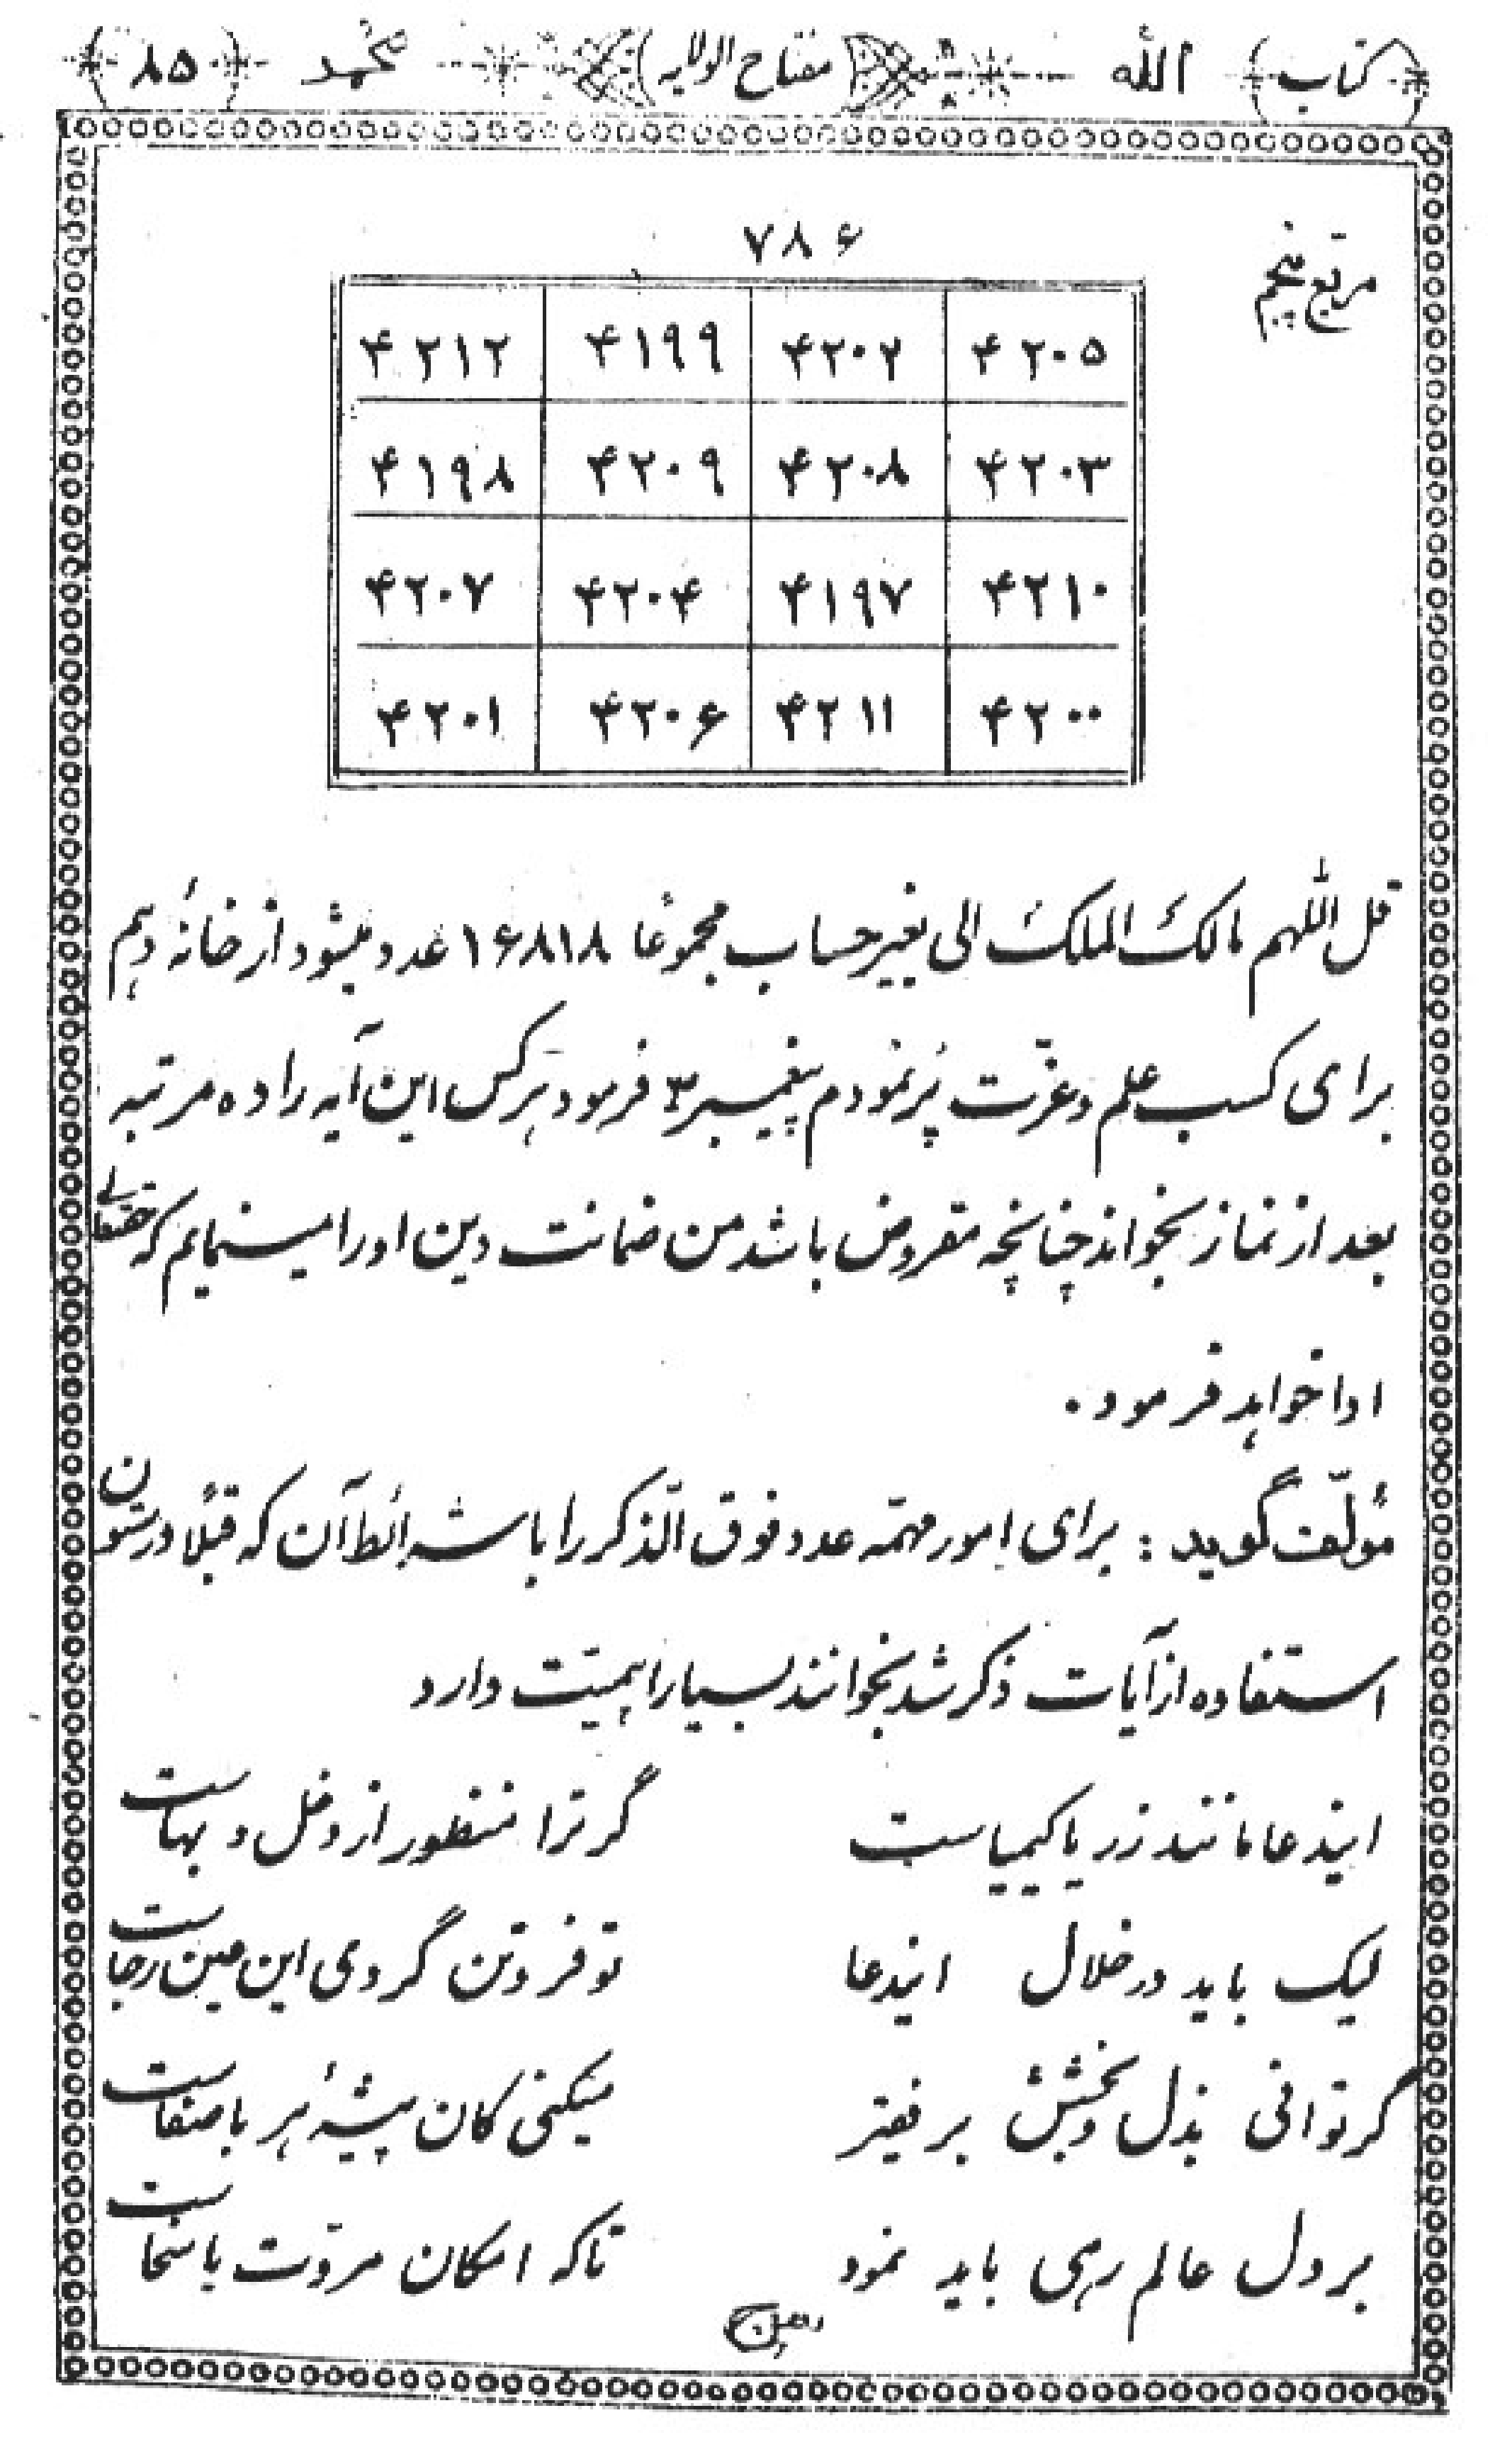 کتاب الله مفتاح الولایه محمد ۸۵
مربع پنجم
۷۸۶
۴۲۱۲ ۴۱۹۹ ۴۲۰۲ ۴۲۰۵
۴۱۹۸ ۴۲۰۹ ۴۲۰۸ ۴۲۰۳
۴۲۰۷ ۴۲۰۴ ۴۱۹۷ ۴۲۱۰
۴۲۰۱ ۴۲۰۶ ۴۲۱۱ ۴۲۰۰
قل اللهم مالک الملک الی بغیر حساب مجموعًا ۱۶۸۱۸ عدد میشود از خانهٔ دهم
برای کسب علم و عزّت پُر نمودم پیغمبر ص فرمود هر کس این آیه را ده مرتبه
بعد از نماز بخواند چنانچه مقروض باشد من ضمانت دین او را مینمایم که حقتعالی
ادا خواهد فرمود .
مؤلّف گوید : برای امور مهمّه عدد فوق الذّکر را با شرائط آن که قبلًا در ستون
استفاده از آیات ذکر شد بخوانند بسیار اهمیّت دارد
ایندعا مانند زر یا کیمیاست گر ترا منظور از دخل و بهاست
لیک باید در خلال ایندعا تو فروتن گردی این عین رجاست
گر توانی بذل و بخشش بر فقیر میکنی کان پیشهٔ هر باصفاست
بر دل عالم رهی باید نمود تا که امکان مروّت با سخاست